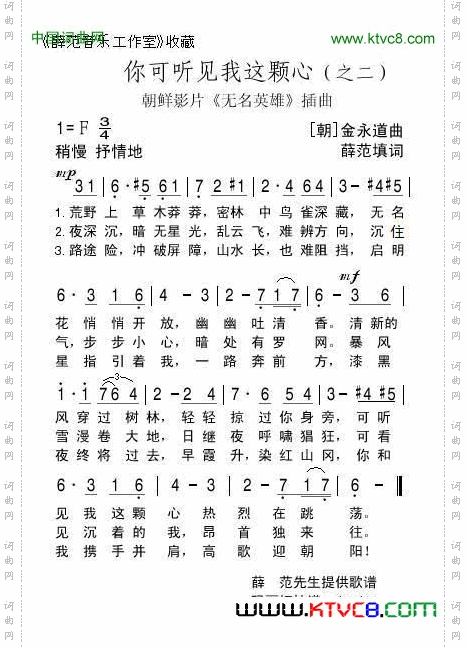 中国词曲网
《薛范音乐工作室》收藏
www.ktvc8.com
你可听见我这颗心（之二）
朝鲜影片《无名英雄》插曲
1=F 3/4
[朝]金永道曲
稍慢 抒情地
薛范填词
mp
31 | 6·#5 61 | 72 #1 | 2·4 34 | 5-#5 |
1.荒野上 草木莽莽，密林 中鸟雀深藏，无名
2.夜深沉，暗无星光，乱云飞，难辨方向，沉住
3.路途险，冲破屏障，山水长，也难阻挡，启明
mf
6·3 16 | 4-3 | 2-7 17 | 6-36 |
花悄悄开放，幽幽吐清 香。清新的
气，步步小心，暗处有罗 网。暴风
星指引着我，一路奔前 方，漆黑
1·1 764 | 2·4 34 | 3-#4#5 |
风穿过树林，轻轻掠过你身旁，可听
雪漫卷大地，日继夜呼啸猖狂，可看
夜终将过去，早霞升，染红山冈，你和
6·3 16 | 2-4 | 3-2 | 7 17 | 6- ||
见我这颗心热烈在跳荡。
见沉着的我，昂首独来往。
我携手并肩，高歌迎朝阳！
薛 范先生提供歌谱
www.KTVC8.com
词曲网
词曲网